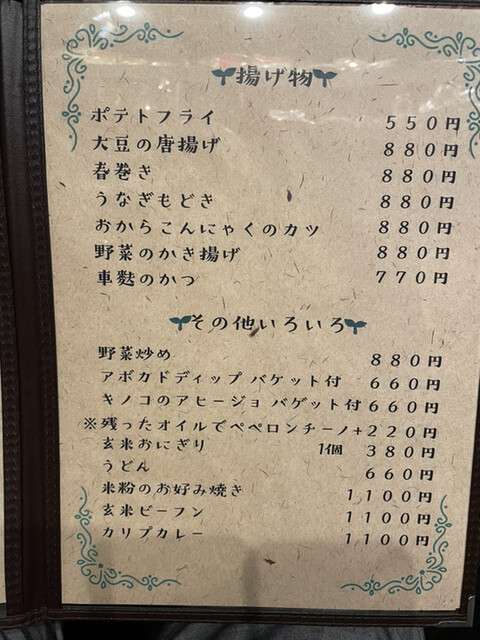 揚げ物
ポテトフライ 550円
大豆の唐揚げ 880円
春巻き 880円
うなぎもどき 880円
おからこんにゃくのカツ 880円
野菜のかき揚げ 880円
車麩のかつ 770円
その他いろいろ
野菜炒め 880円
アボカドディップ バゲット付 660円
キノコのアヒージョ バゲット付 660円
※残ったオイルでペペロンチーノ+220円
玄米おにぎり 1個 380円
うどん 660円
米粉のお好み焼き 1100円
玄米ビーフン 1100円
カリプカレー 1100円